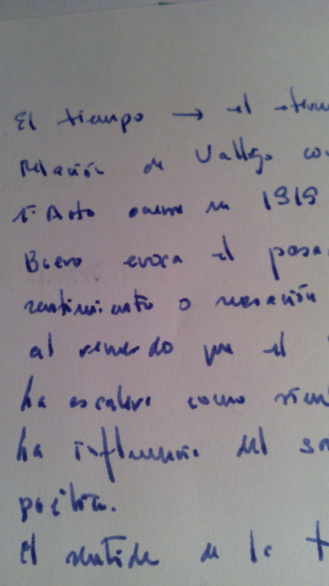 El tiempo → el
Relación de Vallejo con
1º Acto ocurre en 1919
Buero evoca el pasa
sentimiento o sensación
al recuerdo que el
ha como
ha influencia del
poética.
El sentido de la t